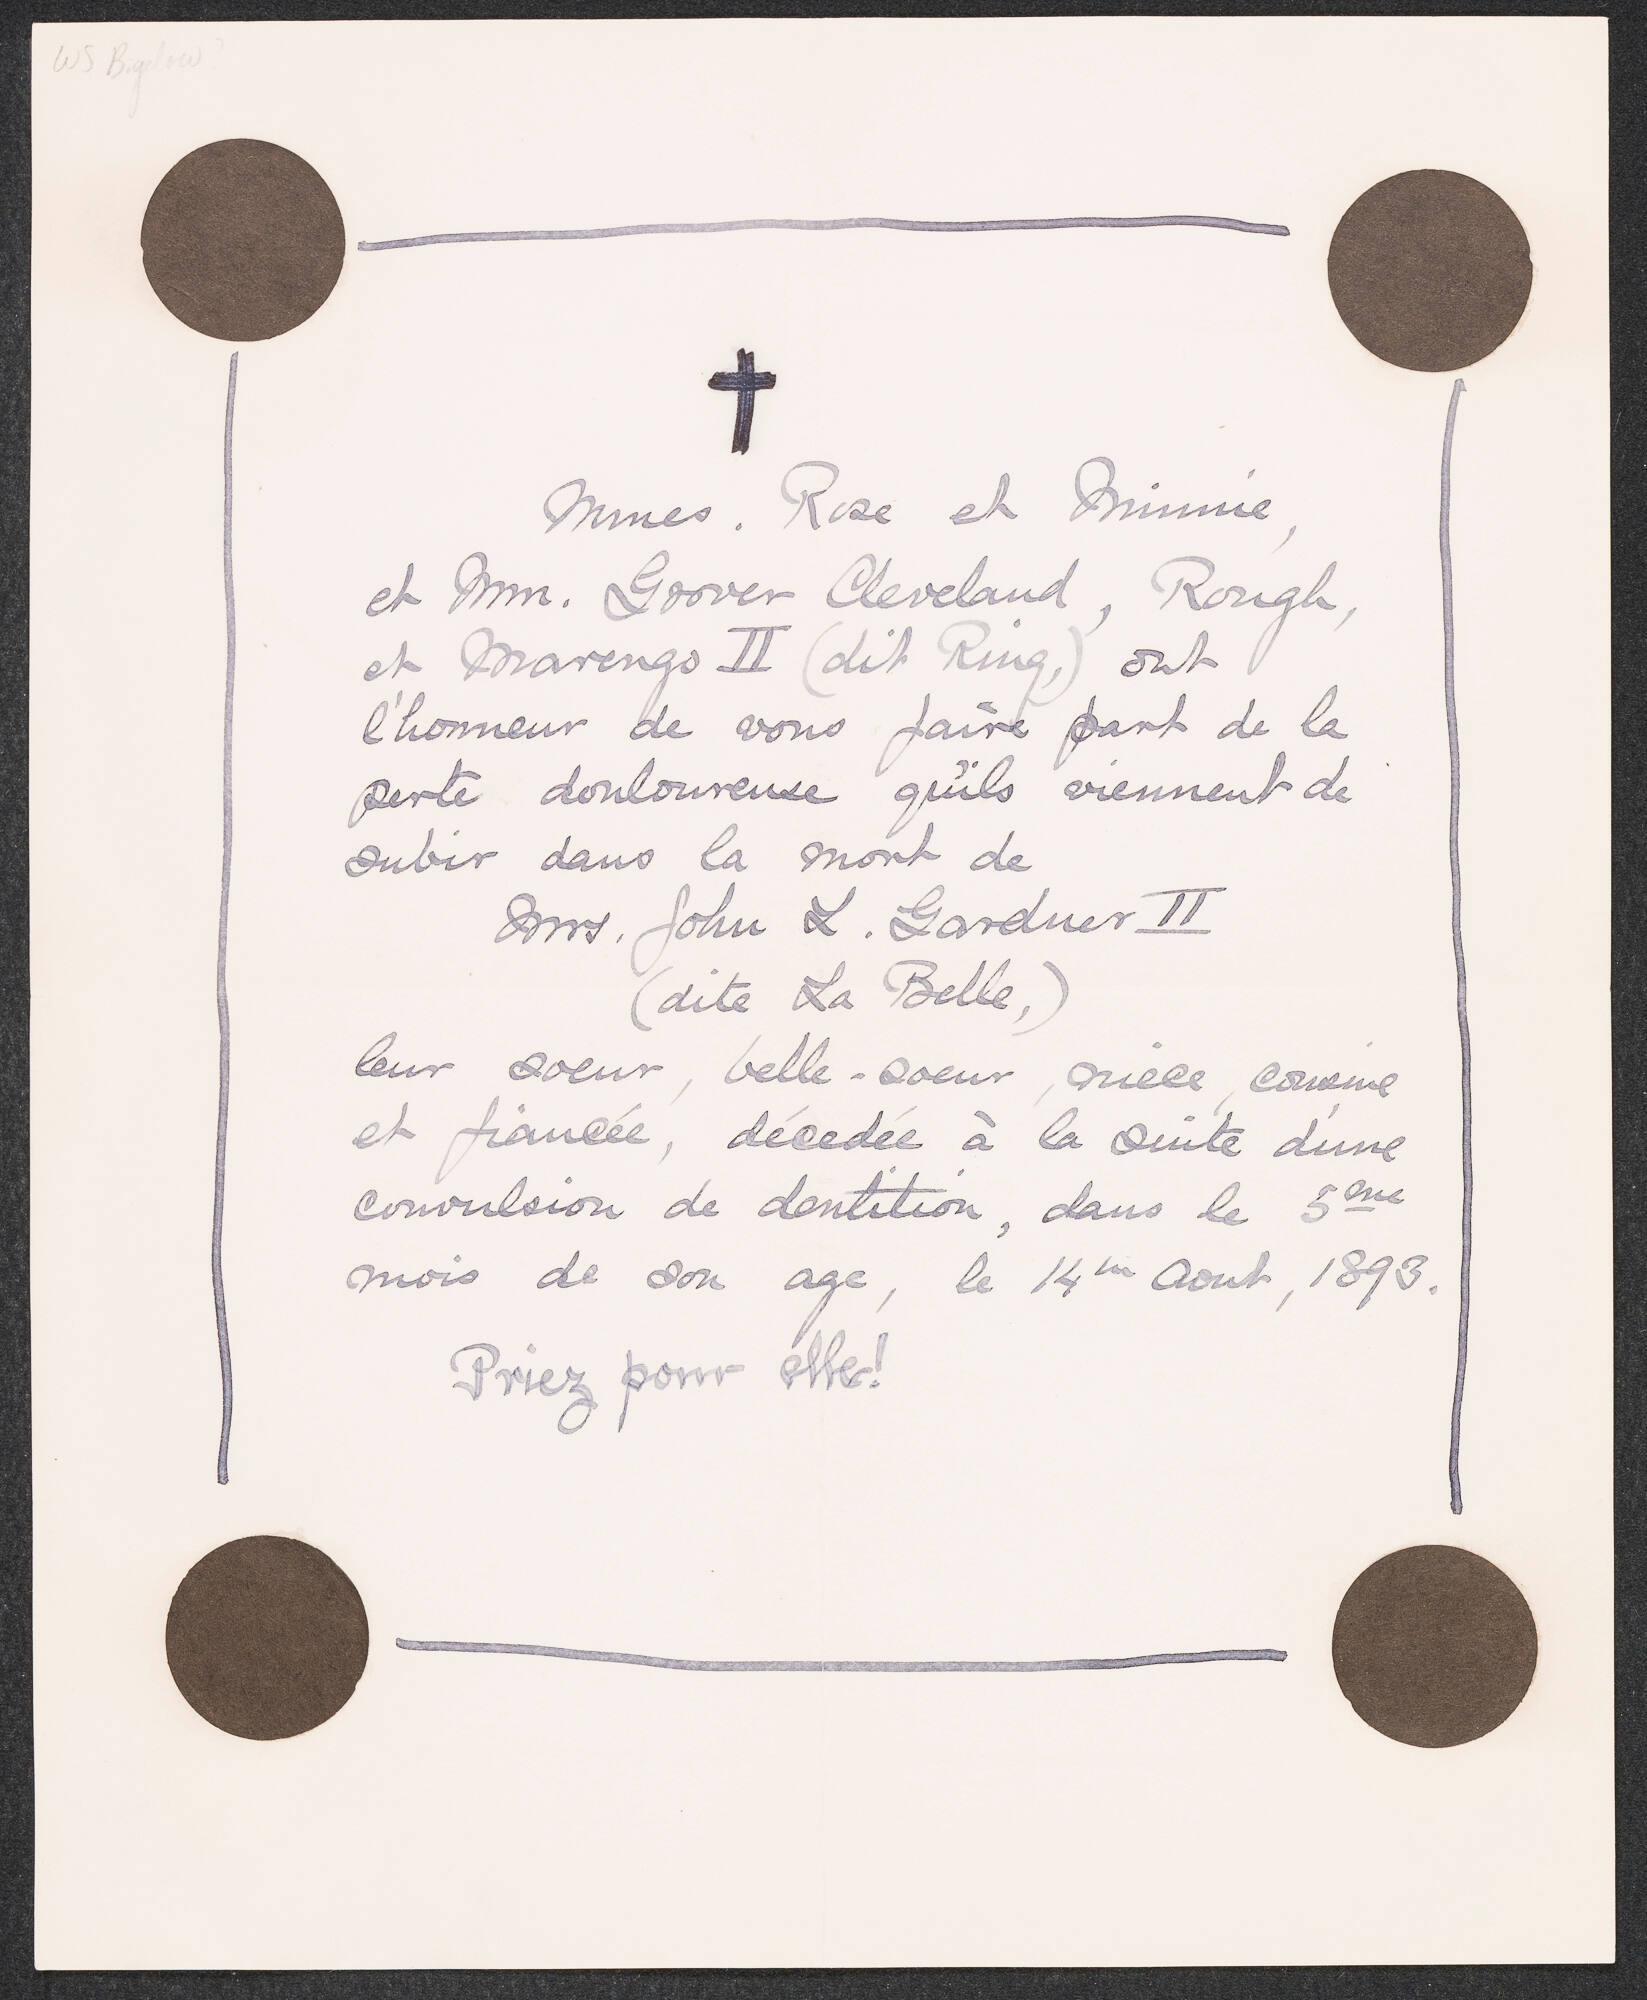 WS Bigelow?
Mmes. Rose et Minnie,
et Mm. Grover Cleveland, Rough,
et Marengo II (dit Ring,) ont
l'honneur de vous faire part de la
perte douloureuse qu'ils viennent de
subir dans la mort de
Mrs. John L. Gardner II
(dite La Belle,)
leur soeur, belle-soeur, nièce, cousine
et fiancée, décedée à la suite d'une
convulsion de dentition, dans le 5me
mois de son age, le 14m Aout, 1893.
Priez pour elle!